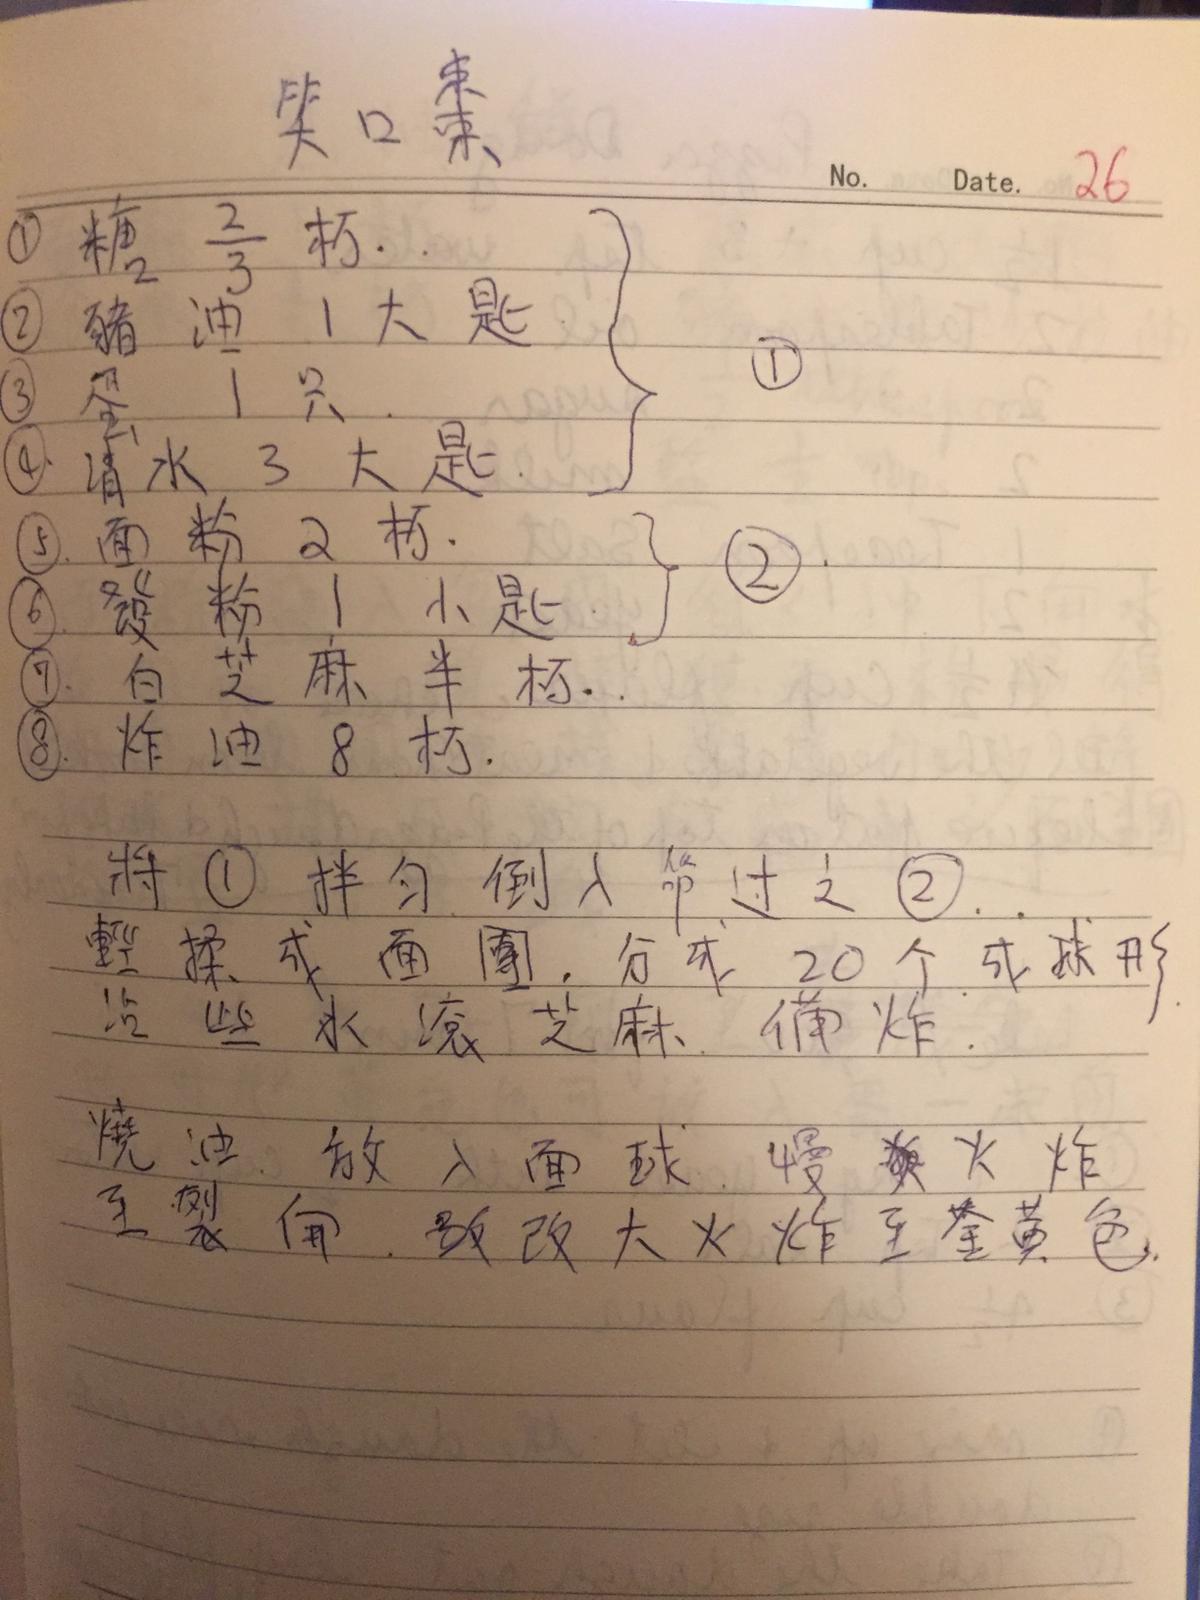 笑口棗
No. Date. 26
① 糖 2/3 杯..
② 豬油 1大匙
③ 蛋 1 只.
④ 清水 3 大匙.
①
⑤. 面粉 2 杯.
⑥. 發粉 1 小匙.
②.
⑦. 白芝麻半杯..
⑧. 炸油 8 杯.
將 ① 拌勻倒入篩过之 ②..
輕揉成面團.分成 20个成球形.
沾些水滾芝麻.備炸.
燒油.放入面球.慢火炸
至裂開.改大火炸至金黄色.